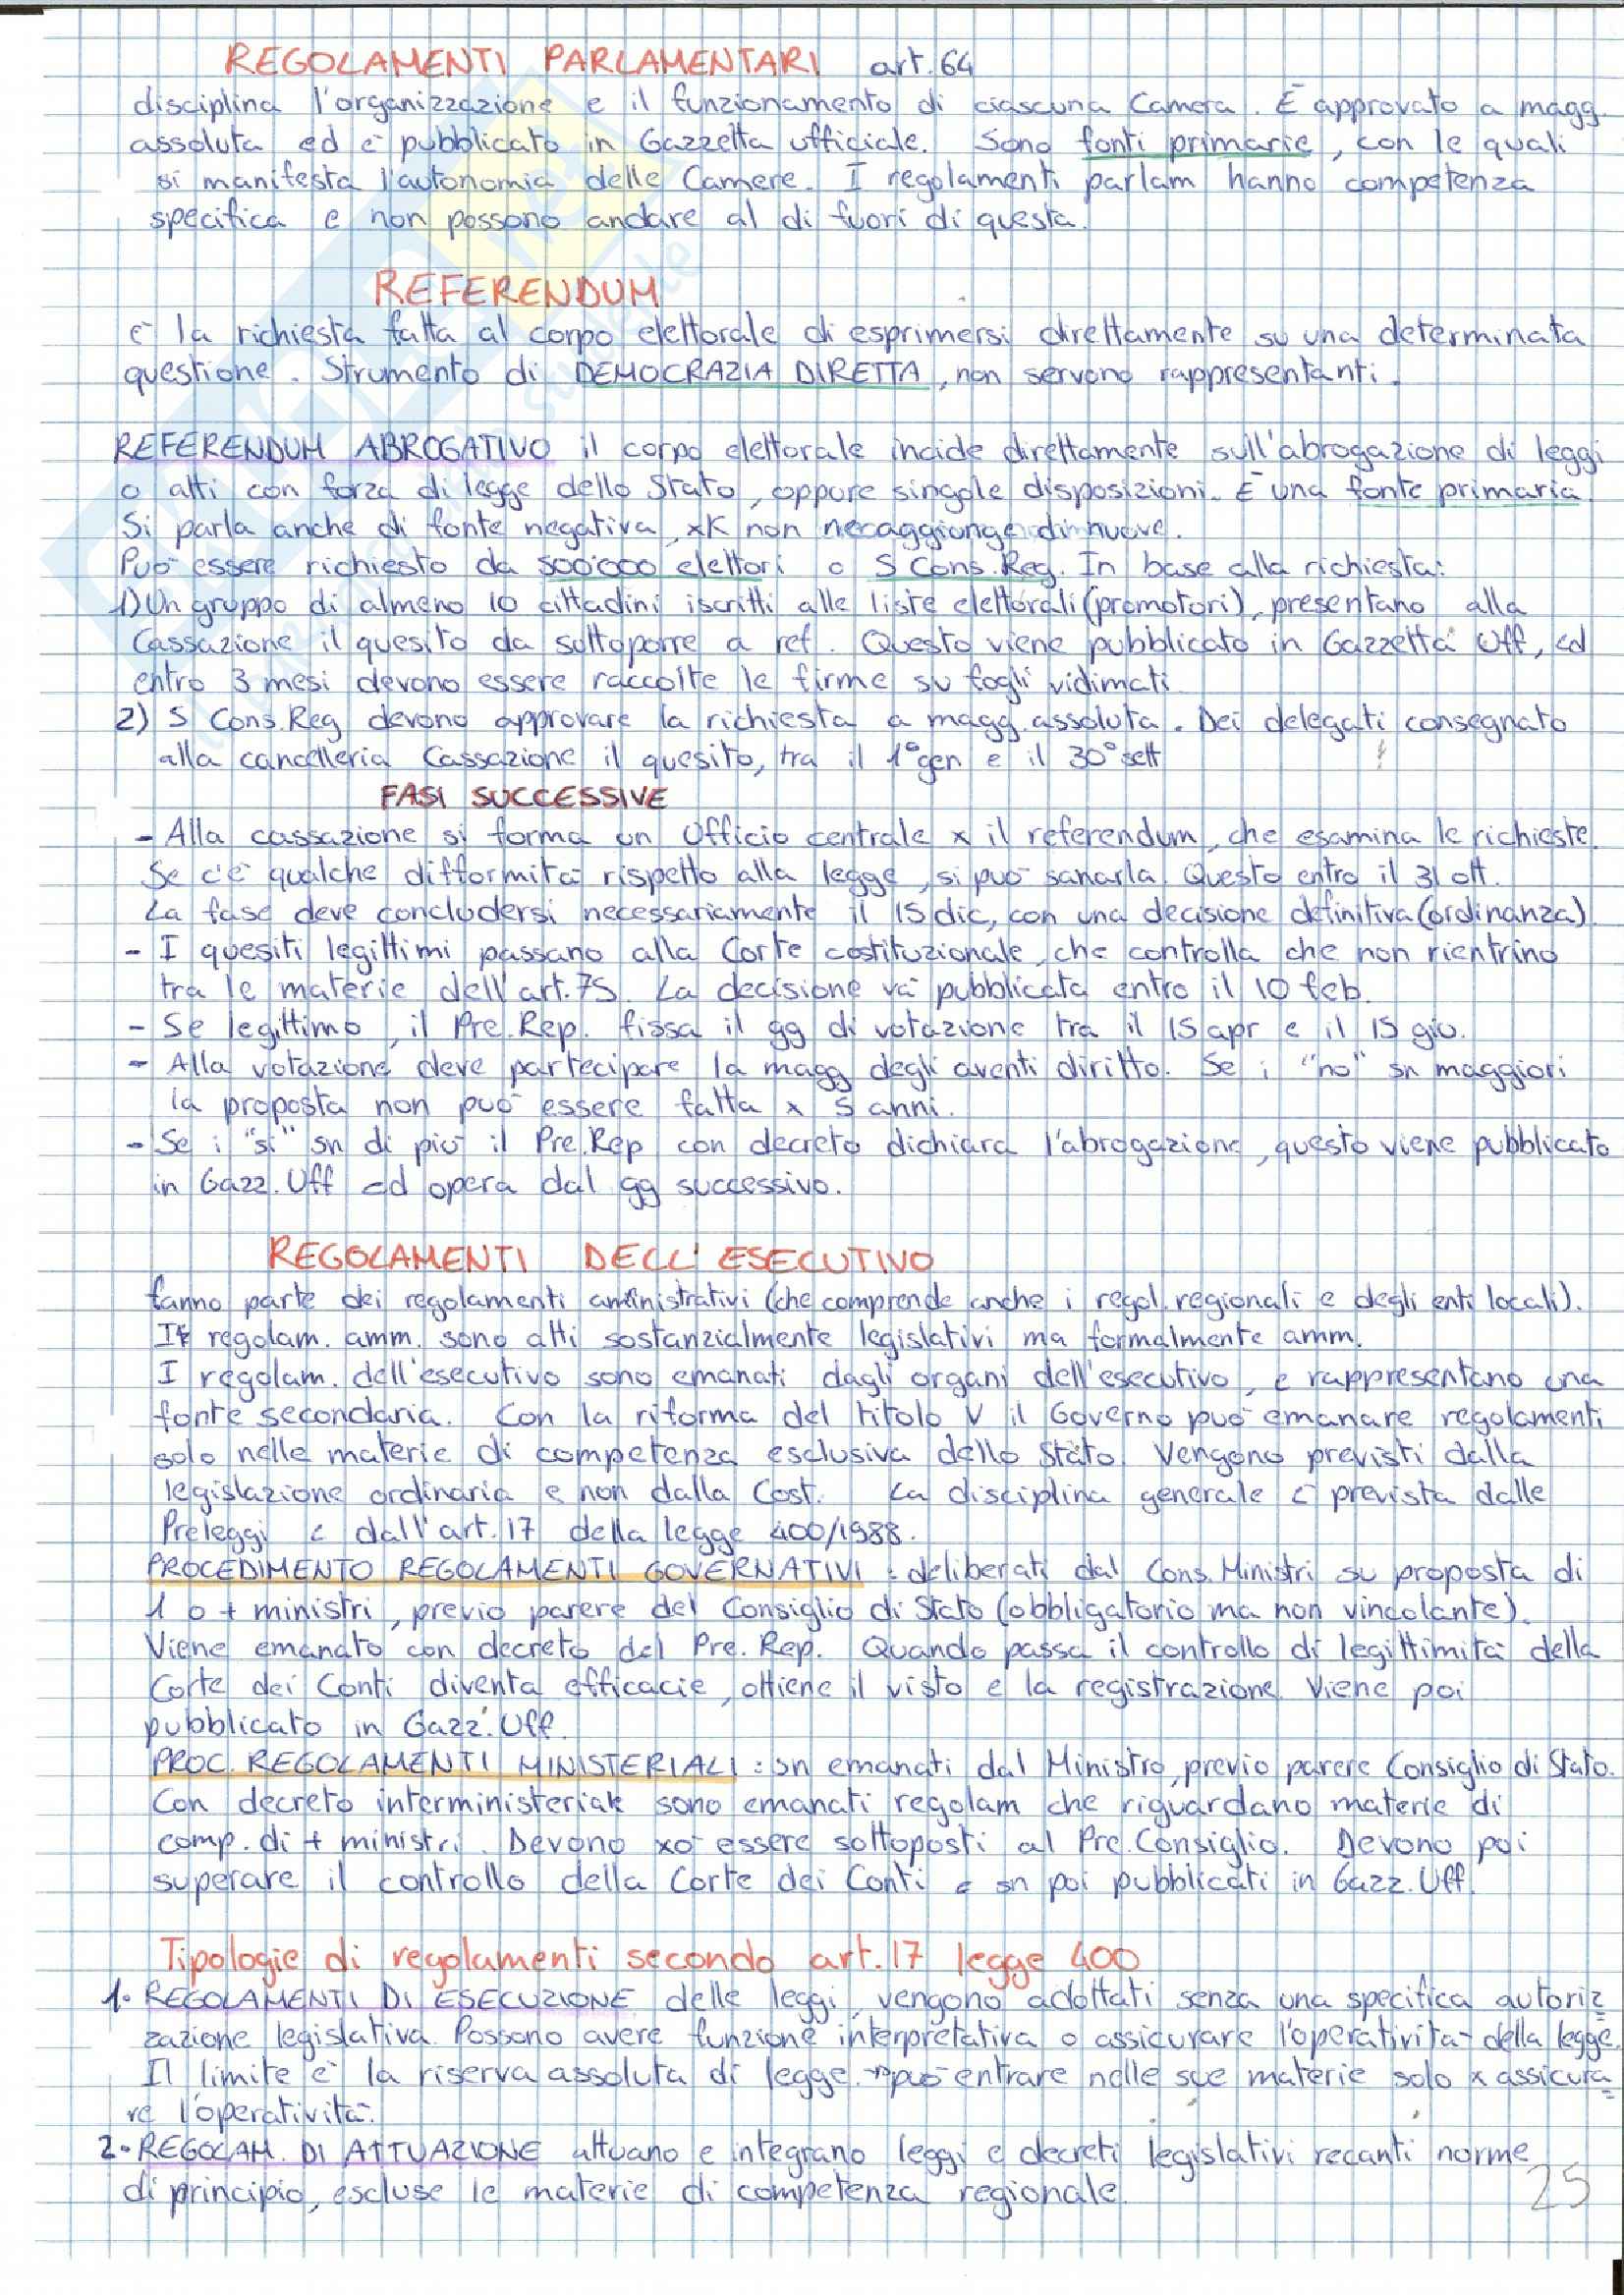 REGOLAMENTI PARLAMENTARI art. 64
disciplina l'organizzazione e il funzionamento di ciascuna Camera. È approvato a magg.
assoluta ed è pubblicato in Gazzetta ufficiale. Sono fonti primarie, con le quali
si manifesta l'autonomia delle Camere. I regolamenti parlam hanno competenza
specifica e non possono andare al di fuori di questa.
REFERENDUM
è la richiesta fatta al corpo elettorale di esprimersi direttamente su una determinata
questione. Strumento di DEMOCRAZIA DIRETTA, non servono rappresentanti.
REFERENDUM ABROGATIVO il corpo elettorale incide direttamente sull'abrogazione di leggi
o atti con forza di legge dello Stato, oppure singole disposizioni. È una fonte primaria.
Si parla anche di fonte negativa, xK non ne aggiunge di nuove.
Può essere richiesto da 500'000 elettori o 5 Cons.Reg. In base alla richiesta:
1) Un gruppo di almeno 10 cittadini iscritti alle liste elettorali (promotori), presentano alla
Cassazione il quesito da sottoporre a ref. Questo viene pubblicato in Gazzetta Uff, ed
entro 3 mesi devono essere raccolte le firme su fogli vidimati
2) 5 Cons.Reg devono approvare la richiesta a magg. assoluta. Dei delegati consegnato
alla cancelleria Cassazione il quesito, tra il 1° gen e il 30° sett
FASI SUCCESSIVE
- Alla cassazione si forma un Ufficio centrale x il referendum, che esamina le richieste.
Se c'è qualche difformità rispetto alla legge, si può sanarla. Questo entro il 31 ott.
La fase deve concludersi necessariamente il 15 dic, con una decisione definitiva (ordinanza).
- I quesiti legittimi passano alla Corte costituzionale, che controlla che non rientrino
tra le materie dell'art. 75. La decisione va pubblicata entro il 10 feb.
- Se legittimo, il Pre.Rep. fissa il gg di votazione tra il 15 apr e il 15 giu.
- Alla votazione deve partecipare la magg degli aventi diritto. Se i "no" sn maggiori
la proposta non può essere fatta x 5 anni.
- Se i "si" sn di più il Pre.Rep con decreto dichiara l'abrogazione, questo viene pubblicato
in Gazz.Uff ed opera dal gg successivo.
REGOLAMENTI DELL'ESECUTIVO
fanno parte dei regolamenti amministrativi (che comprende anche i regol. regionali e degli enti locali).
I regolam. amm. sono atti sostanzialmente legislativi ma formalmente amm.
I regolam. dell'esecutivo sono emanati dagli organi dell'esecutivo, e rappresentano una
fonte secondaria. Con la riforma del titolo V il Governo può emanare regolamenti
solo nelle materie di competenza esclusiva dello Stato. Vengono previsti dalla
legislazione ordinaria e non dalla Cost. La disciplina generale è prevista dalle
Preleggi e dall'art. 17 della legge 400/1988.
PROCEDIMENTO REGOLAMENTI GOVERNATIVI: deliberati dal Cons. Ministri su proposta di
1 o + ministri, previo parere del Consiglio di Stato (obbligatorio ma non vincolante).
Viene emanato con decreto del Pre. Rep. Quando passa il controllo di legittimità della
Corte dei Conti diventa efficacie, ottiene il visto e la registrazione. Viene poi
pubblicato in Gazz. Uff.
PROC. REGOLAMENTI MINISTERIALI: sn emanati dal Ministro, previo parere Consiglio di Stato.
Con decreto interministeriale sono emanati regolam che riguardano materie di
comp. di + ministri. Devono xò essere sottoposti al Pre.Consiglio. Devono poi
superare il controllo della Corte dei Conti e sn poi pubblicati in Gazz.Uff.
Tipologie di regolamenti secondo art. 17 legge 400
1. REGOLAMENTI DI ESECUZIONE delle leggi, vengono adottati senza una specifica autoriz
zazione legislativa. Possono avere funzione interpretativa o assicurare l'operatività della legge.
Il limite è la riserva assoluta di legge. → può entrare nelle sue materie solo x assicura
re l'operatività.
2. REGOLAM. DI ATTUAZIONE attuano e integrano leggi e decreti legislativi recanti norme
di principio, escluse le materie di competenza regionale.
25